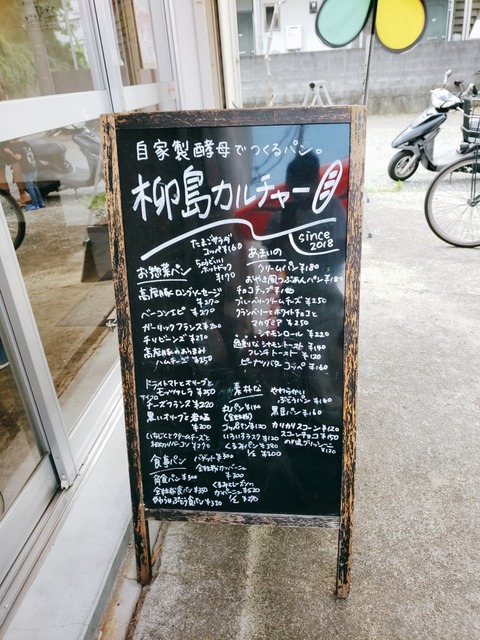 自家製酵母でつくるパン。
柳島カルチャー
since
2018
たまごサラダ
コッペ ¥160
ちょうどいい
ホットドック
¥170
お惣菜パン
高座豚ロングソーセージ
¥270
ベーコンエピ ¥270
ガーリックフランス ¥200
チリビーンズ ¥250
高座豚の
ハムチーズ ¥250
ドライトマトとオリーブと
モッツァレラ ¥250
チーズフランス ¥220
黒いオリーブと
¥200
いちじくとクリームチーズと
¥270
食事パン
バゲット ¥300
¥300
角食パン ¥300
全粒粉食パン ¥350
ぶどう食パン ¥320
あまいの
クリームパン ¥180
つぶあんパン ¥180
チョコチップ ¥160
ブルーベリークリームチーズ ¥250
クランベリーとホワイトチョコと
マカダミア ¥250
シナモンロール ¥220
シナモントースト ¥140
フレンチトースト ¥120
ピーナツバターコッペ ¥160
素朴な
丸パン
¥120
くるみパン
½ ¥200
くるみとレーズンの
カンパーニュ ¥520
½ ¥270
やわらかい
ぶどうパン ¥160
黒豆パン ¥160
カリカリスコーン ¥120
スコーンチョコ ¥150
グリッシーニ
¥120